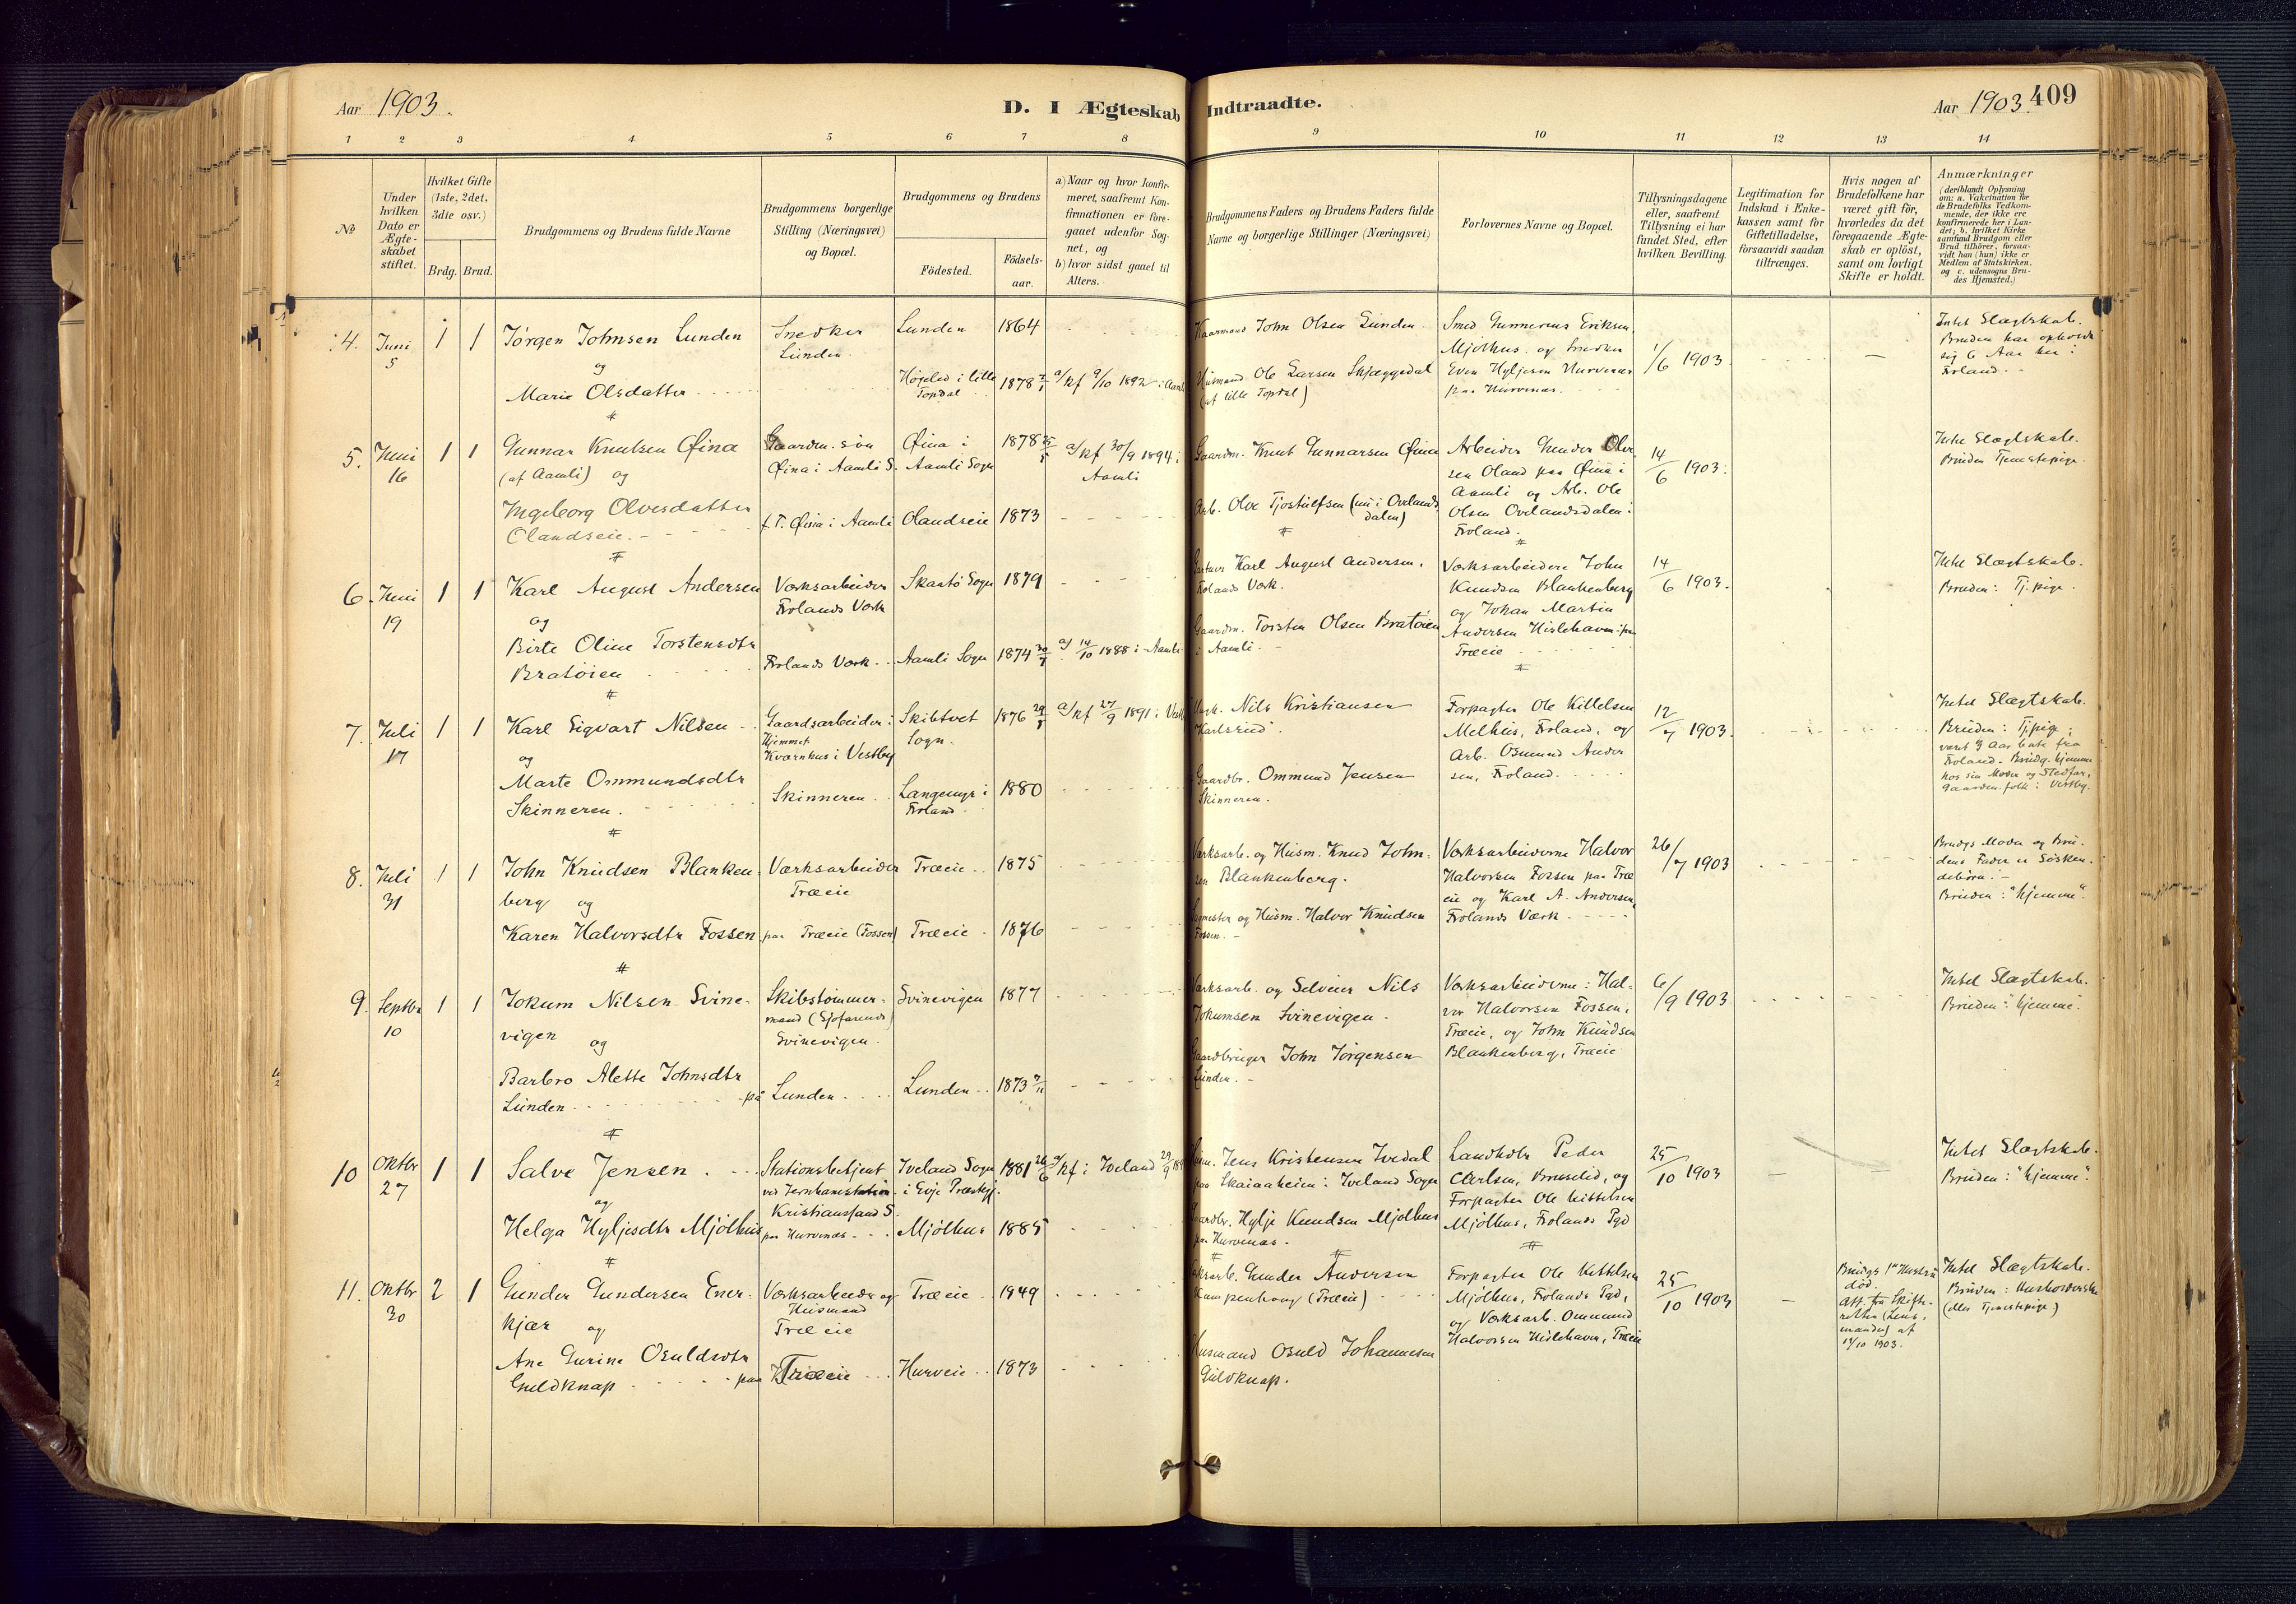 Aar 1903.
D. I Ægteskab Indtraadte.
Aar 1903. 409
1 2 3 4 5 6 7 8 9 10 11 12 13 14
No
Under hvilken Dato er Ægteskabet stiftet.
Hvilket Gifte (1ste, 2det, 3die osv.)
Brdg. Brud.
Brudgommens og Brudens fulde Navne
Brudgommens borgerlige Stilling (Næringsvei) og Bopæl.
Brudgommens og Brudens
Fødested.
Fødselsaar.
a) Naar og hvor konfirmeret, saafremt Konfirmationen er foregaaet udenfor Sognet, og
b) hvor sidst gaaet til Alters.
Brudgommens Faders og Brudens Faders fulde Navne og borgerlige Stillinger (Næringsvei)
Forlovernes Navne og Bopæl.
Tillysningsdagene eller, saafremt Tillysning ei har fundet Sted, efter hvilken Bevilling.
Legitimation for Indskud i Enkekassen samt for Giftetilladelse, forsaavidt saadan tiltrænges.
Hvis nogen af Brudefolkene har været gift før, hvorledes da det foregaaende Ægteskab er opløst, samt om lovligt Skifte er holdt.
Anmærkninger
(deriblandt Oplysning om: a. Vakcination for de Brudefolks Vedkommende, der ikke ere konfirmerede her i Landet; b. hvilket Kirkesamfund Brudgom eller Brud tilhører, forsaavidt han (hun) ikke er Medlem af Statskirken, og c. udensogns Brudes Hjemsted.)
4. Juni 5 1 1
Jørgen Johnsen Lunden
og
Marie Olsdatter
Snedker
Lunden.
Lunden 1864
i lille
Topdal 1878 a/kf 9/10 1892
John Olsen Lunden.
Husmand Ole Larsen Skjæggedal
(af lille Topdal)
Smed Gunnerius Eriksen
Mjølhus og Snedker
Even Hyljesen Hurvenæs
paa Hurvenæs.
1/6 1903
Intet Slægtskab.
Bruden har opholdt
sig 6 Aar her i
Froland.
5. Juni 16 1 1
Gunnar Knutsen Øina
(af Aamli) og
Ingeborg Olvesdatter
Olandseie.
Gaardm. søn
Øina i Aamli S.
f. T. Øina i Aamli
Øina i
Aamli Sogn 1878
Olandseie 1873
a/kf 30/9 1894 i
Aamli
Gaardm. Knut Gunnarsen Øina
Arb. Olve Tjostulfsen (nu i Ovelands
dalen)
Arbeider Gunder Olve
sen Oland paa Øina i
Aamli og Arb. Ole
Olsen Ovelandsdalen i
Froland.
14/6 1903.
Intet Slægtskab.
Bruden Tjenestepige.
6. Juni 19 1 1
Karl August Andersen
og
Birte Oline Torstensdtr
Bratøien
Værksarbeider
Frolands Værk
Frolands Værk
Skaatø Sogn 1879
Aamli Sogn 1874
a) 14/10 1888 i Aamli
Karl August Andersen.
Frolands Værk.
Gaardm. Torsten Olsen Bratøien
i Aamli.
Værksarbeidere John
Knudsen Blankenberg
og Johan Martin
Andersen Hislehaven paa
Træeie
14/6 1903.
Intet Slægtskab.
Bruden: Tj. pige.
7. Juli 17 1 1
Karl Sigvart Nilsen
og
Marte Ommundsdtr
Skinneren.
Gaardsarbeider i
Hjemmet
Kværnhus i Vestby
Skinneren
Skibtvet
Sogn. 1876
Langemyr i
Froland 1880
a/kf 27/9 1891 i
Nils Kristiansen
Karlsrud.
Gaardbr. Ommund Jensen
Skinneren.
Forpagter Ole Kittelsen
Melhus, Froland, og
Arb. Osmund Ander
sen, Froland.
12/7 1903.
Intet Slægtskab.
Bruden: Tj. pige;
været 3 Aar borte fra
Froland. Brudg. hjemme
hos sin Moder og Stedfar,
Gaardm. folk i Vestby.
8. Juli 31 1 1
John Knudsen Blanken
berg og
Karen Halvorsdtr Fossen
Værksarbeider
Træeie
paa Træeie (Fossen)
Træeie 1875
Træeie 1876
Værksarb. og Husm. Knud John
sen Blankenberg.
og Husm. Halvor Knudsen
Fossen.
Værksarbeiderne Halvor
Halvorsen Fossen paa Træ
eie og Karl A. Andersen,
Frolands Værk
26/7 1903
Brudgs Moder og Bru
dens Fader er Søsken-
debørn.
Bruden: "hjemme".
9. Septbr 10 1 1
Jokum Nilsen Svine-
vigen og
Barbro Alette Johnsdtr
Lunden
Skibstømmer-
mand (Sjøfarende)
Svinevigen.
på Lunden
Svinevigen 1877
Lunden 1873
Værksarb. og Selveier Nils
Jokumsen Svinevigen.
Gaardbruger John Jørgensen
Lunden.
Værksarbeiderne: Hal-
vor Halvorsen Fossen,
Træeie, og John Knudsen
Blankenberg, Træeie
6/9 1903
Intet Slægtskab.
Bruden: "hjemme".
10 Oktbr 27 1 1
Salve Jensen.
og
Helga Hyljesdtr Mjølhus
Stationsbetjent
ved Jernbanestation
Kristianssand S.
paa Hurvenæs
Iveland Sogn
i Evje Præstegj. 1881
Mjølhus 1885
a/kf i Iveland
Jens Kristensen Ivedal
paa Skaiaaheien i Iveland Sogn
Gaardbr. Hylje Knudsen Mjølhus
paa Hurvenæs.
Landhdlr Peder
Carlsen, Bruselid, og
Forpagter Ole Kittelsen
Mjølhus, Frolands Pgd
25/10 1903
Intet Slægtskab.
Bruden: "hjemme".
11. Oktbr 30 2 1
Gunder Gundersen Ener-
kjær og
Ane Gurine Osuldsdtr
Guldknap paa
Værksarbeider og
Husmand
Træeie
Træeie
Træeie 1849
Hurveie 1873
Gunder Andersen
Kampenhaug (Træeie)
Husmand Osuld Johannesen
Guldknap.
Forpagter Ole Kittelsen
Mjølhus, Frolands Pgd,
og Værksarb. Ommund
Halvorsen Hislehaven, Træeie
25/10 1903
Brudgs 1ste Hustru
død.
Att. fra Skifte-
retten (Lens-
manden) af
1903.
Intet Slægtskab.
Bruden: Husholderske
(eller Tjenestepige)